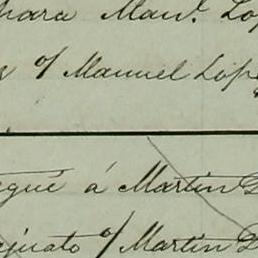 para Manl. Lop
s o/ Manuel Lope
egué á Martin
ejuato o/ Martin